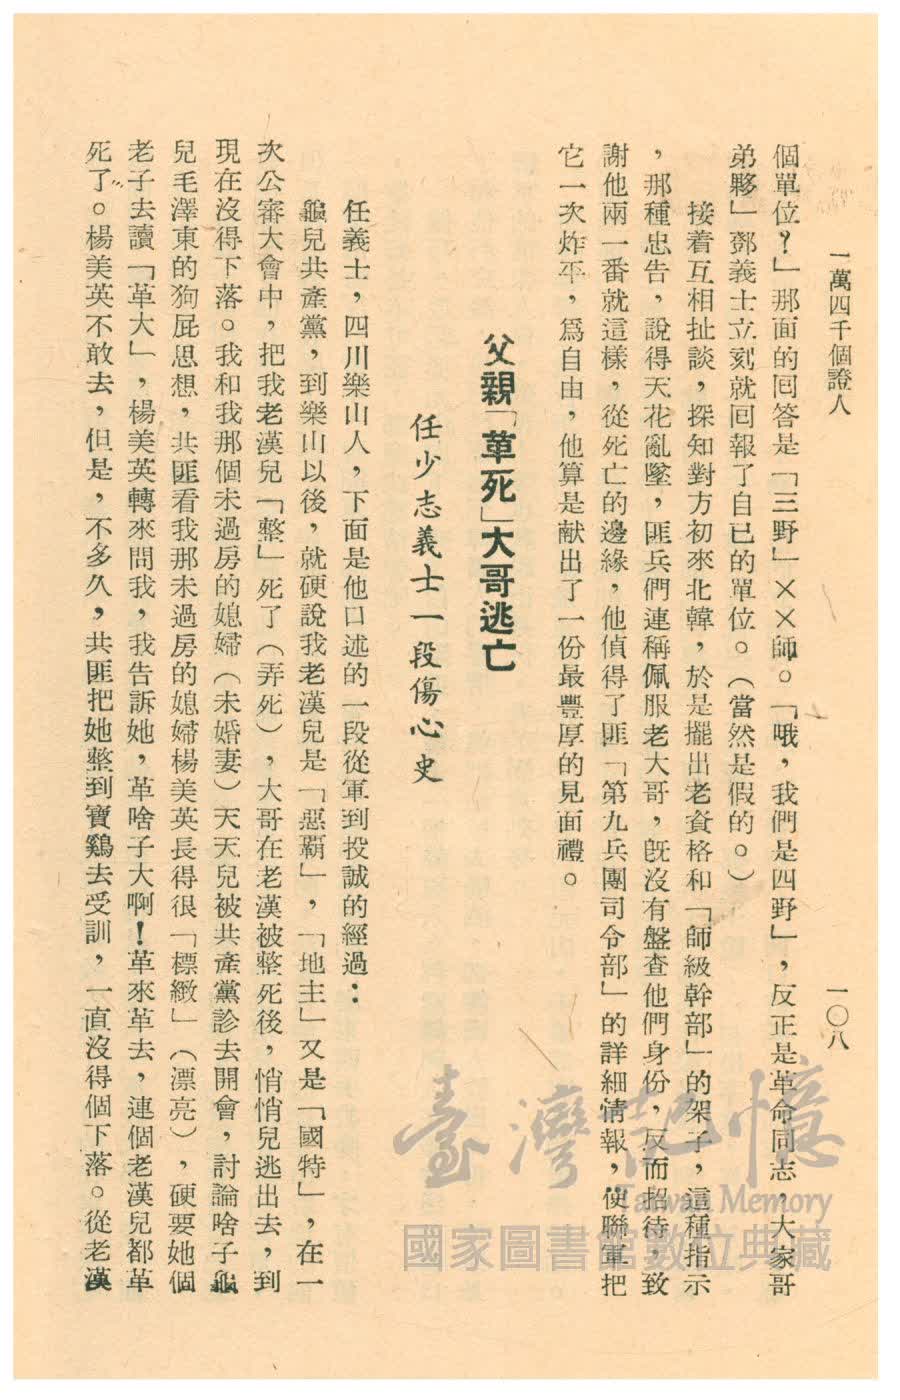 一萬四千個證人
一〇八
個單位？」那面的回答是「三野」××師。「哦，我們是四野」，反正是革命同志，大家哥
弟夥」鄧義士立刻就回報了自已的單位。（當然是假的。）
接着互相扯談，探知對方初來北韓，於是擺出老資格和「師級幹部」的架子，這種指示
，那種忠告，說得天花亂墜，匪兵們連稱佩服老大哥，旣沒有盤查他們身份，反而招待，致
謝他兩一番就這樣，從死亡的邊緣，他偵得了匪「第九兵團司令部」的詳細情報，使聯軍把
它一次炸平，爲自由，他算是献出了一份最豐厚的見面禮。
父親「革死」大哥逃亡
任少志義士一段傷心史
任義士，四川樂山人，下面是他口述的一段從軍到投誠的經過：
龜兒共產黨，到樂山以後，就硬說我老漢兒是「惡霸」，「地主」又是「國特」，在一
次公審大會中，把我老漢兒「整」死了（弄死），大哥在老漢被整死後，悄悄兒逃出去，到
現在沒得下落。我和我那個未過房的媳婦（未婚妻）天天兒被共產黨診去開會，討論啥子龜
兒毛澤東的狗屁思想，共匪看我那未過房的媳婦楊美英長得很「標緻」（漂亮），硬要她個
老子去讀「革大」，楊美英轉來問我，我告訴她，革啥子大啊！革來革去，連個老漢兒都革
死了。楊美英不敢去，但是，不多久，共匪把她整到寶鷄去受訓，一直沒得個下落。從老漢
臺灣記憶
Taiwan Memory
國家圖書館數位典藏